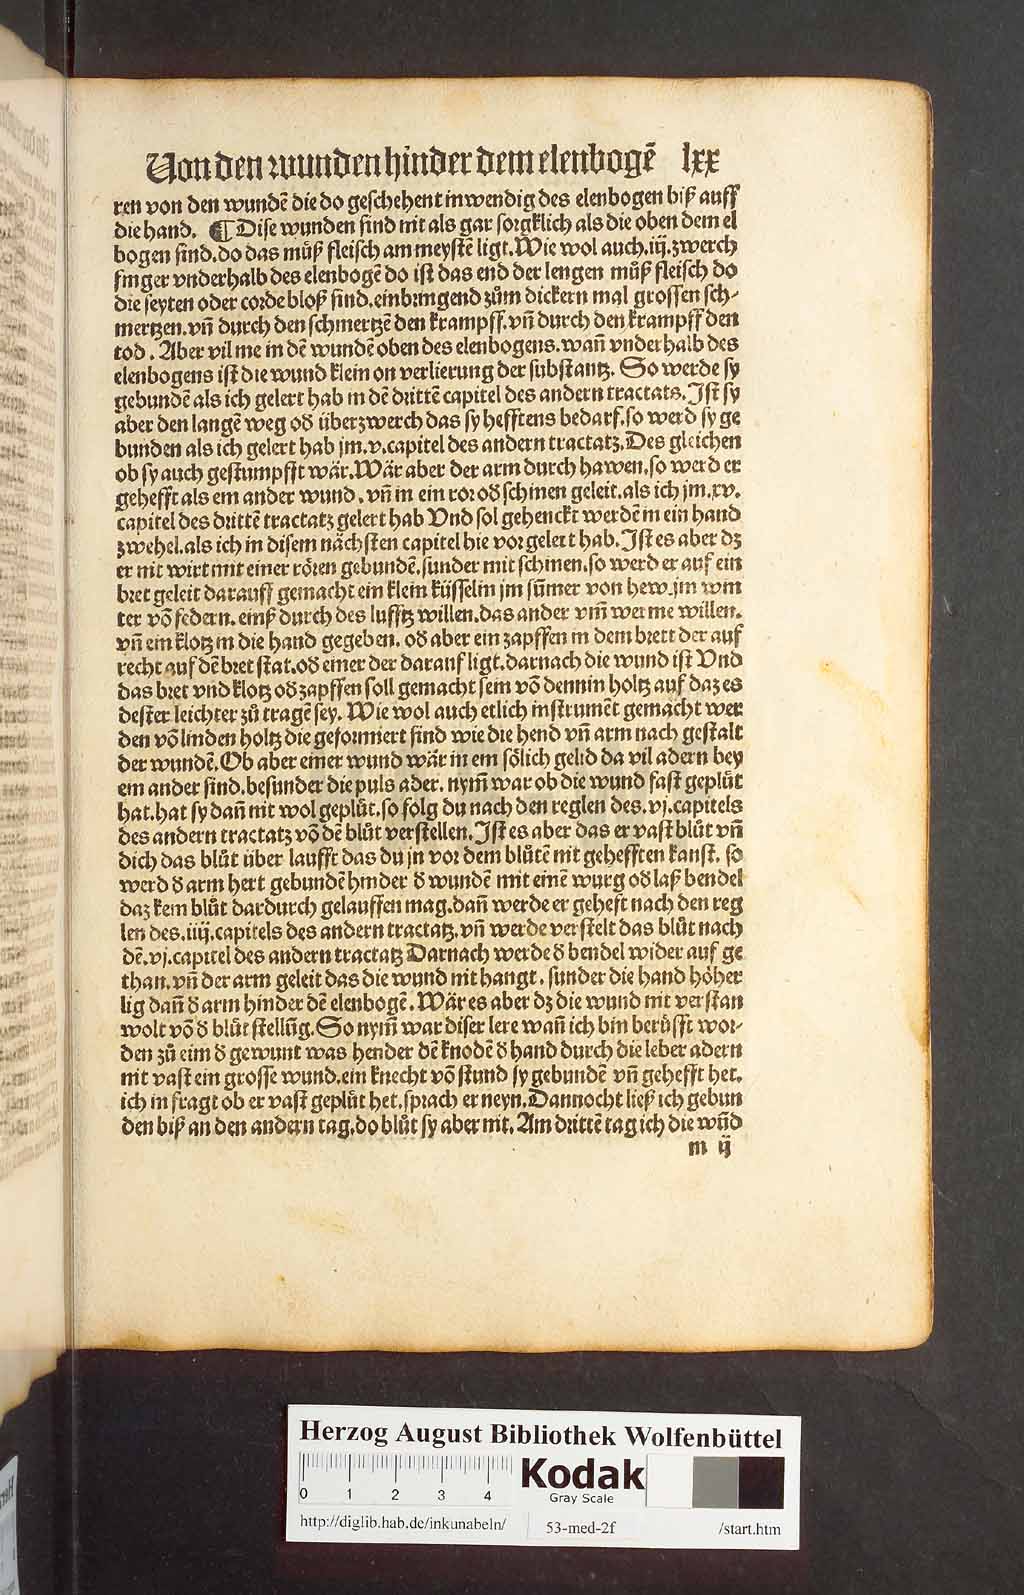 Von den wunden hinder dem elenbogē lxx
ren von den wundē die do geschehent inwendig des elenbogen biß auff
die hand. ¶ Dise wunden sind nit als gar sorgklich als die oben dem el
bogen sind. do das müß fleisch am meystē ligt. Wie wol auch .iij. zwerch
finger vnderhalb des elenbogē do ist das end der lengen müß fleisch do
die seyten oder corde bloß sind. einbringend zům dickern mal grossen sch⸗
mertzen. vñ durch den schmertzē den krampff. vñ durch den krampff den
tod. Aber vil me in dē wundē oben des elenbogens. wañ vnderhalb des
elenbogens ist die wund klein on verlierung der substantz. So werde sy
gebundē als ich gelert hab in dē drittē capitel des andern tractats. Ist sy
aber den langē weg oð überzwerch das sy hefftens bedarf. so werd sy ge
bunden als ich gelert hab jm .v. capitel des andern tractatz. Des gleichen
ob sy auch gestumpfft wär. Wär aber der arm durch hawen. so werd er
gehefft als ein ander wund. vñ in ein ror oð schinen geleit. als ich jm .xv.
capitel des drittē tractatz gelert hab Vnd sol gehenckt werdē in ein hand
zwehel. als ich in disem nächsten capitel hie vor gelert hab. Ist es aber dz
er nit wirt mit einer rören gebundē. sunder mit schinen. so werd er auf ein
bret geleit darauff gemacht ein klein küsselin jm sům̄er von hew. jm win
ter vō federn. einß durch des luffts willen. das ander vm̄ werme willen.
vñ ein klotz in die hand gegeben. oð aber ein zapffen in dem brett der auf
recht auf dē bret stat. oð einer der darauf ligt. darnach die wund ist Vnd
das bret vnd klotz oð zapffen soll gemacht sein vō dennin holtz auf daz es
dester leichter zů tragē sey. Wie wol auch etlich instrumēt gemacht wer
den vō linden holtz die geformiert sind wie die hend vñ arm nach gestalt
der wundē. Ob aber einer wund wär in em sölich gelid da vil adern bey
ein ander sind. besunder die puls ader. nym̄ war ob die wund fast geplůt
hat. hat sy dañ nit wol geplůt. so folg du nach den reglen des .vj. capitels
des andern tractatz vō dē blůt verstellen. Ist es aber das er vast blůt vñ
dich das blůt über laufft das du jn vor dem blůtē nit gehefften kanst. so
werd ð arm hert gebundē hinder ð wundē mit einē wurg oð laß bendel
daz kein blůt dardurch gelauffen mag. dañ werde er geheft nach den reg
len des .iiij. capitels des andern tractatz. vñ werde verstelt das blůt nach
dē .vj. capitel des andern tractatz Darnach werde ð bendel wider auf ge
than. vñ der arm geleit das die wund nit hangt. sunder die hand höher
lig dañ ð arm hinder dē elenbogē. Wär es aber dz die wund nit verstan
wolt vō ð blůt stellūg. So nym̄ war diser lere wañ ich bin berüfft wor⸗
den zů eim ð gewunt was hender dē knodē ð hand durch die leber adern
nit vast ein grosse wund. ein knecht vō stund sy gebundē vñ gehefft het.
ich in fragt ob er vast geplůt het. sprach er neyn. Dannocht ließ ich gebun
den biß an den andern tag. do blůt sy aber nit. Am drittē tag ich die wūd
m ij
Herzog August Bibliothek Wolfenbüttel
0 1 2 3 4
Kodak
Gray Scale
http://diglib.hab.de/inkunabeln/ 53-med-2f /start.htm